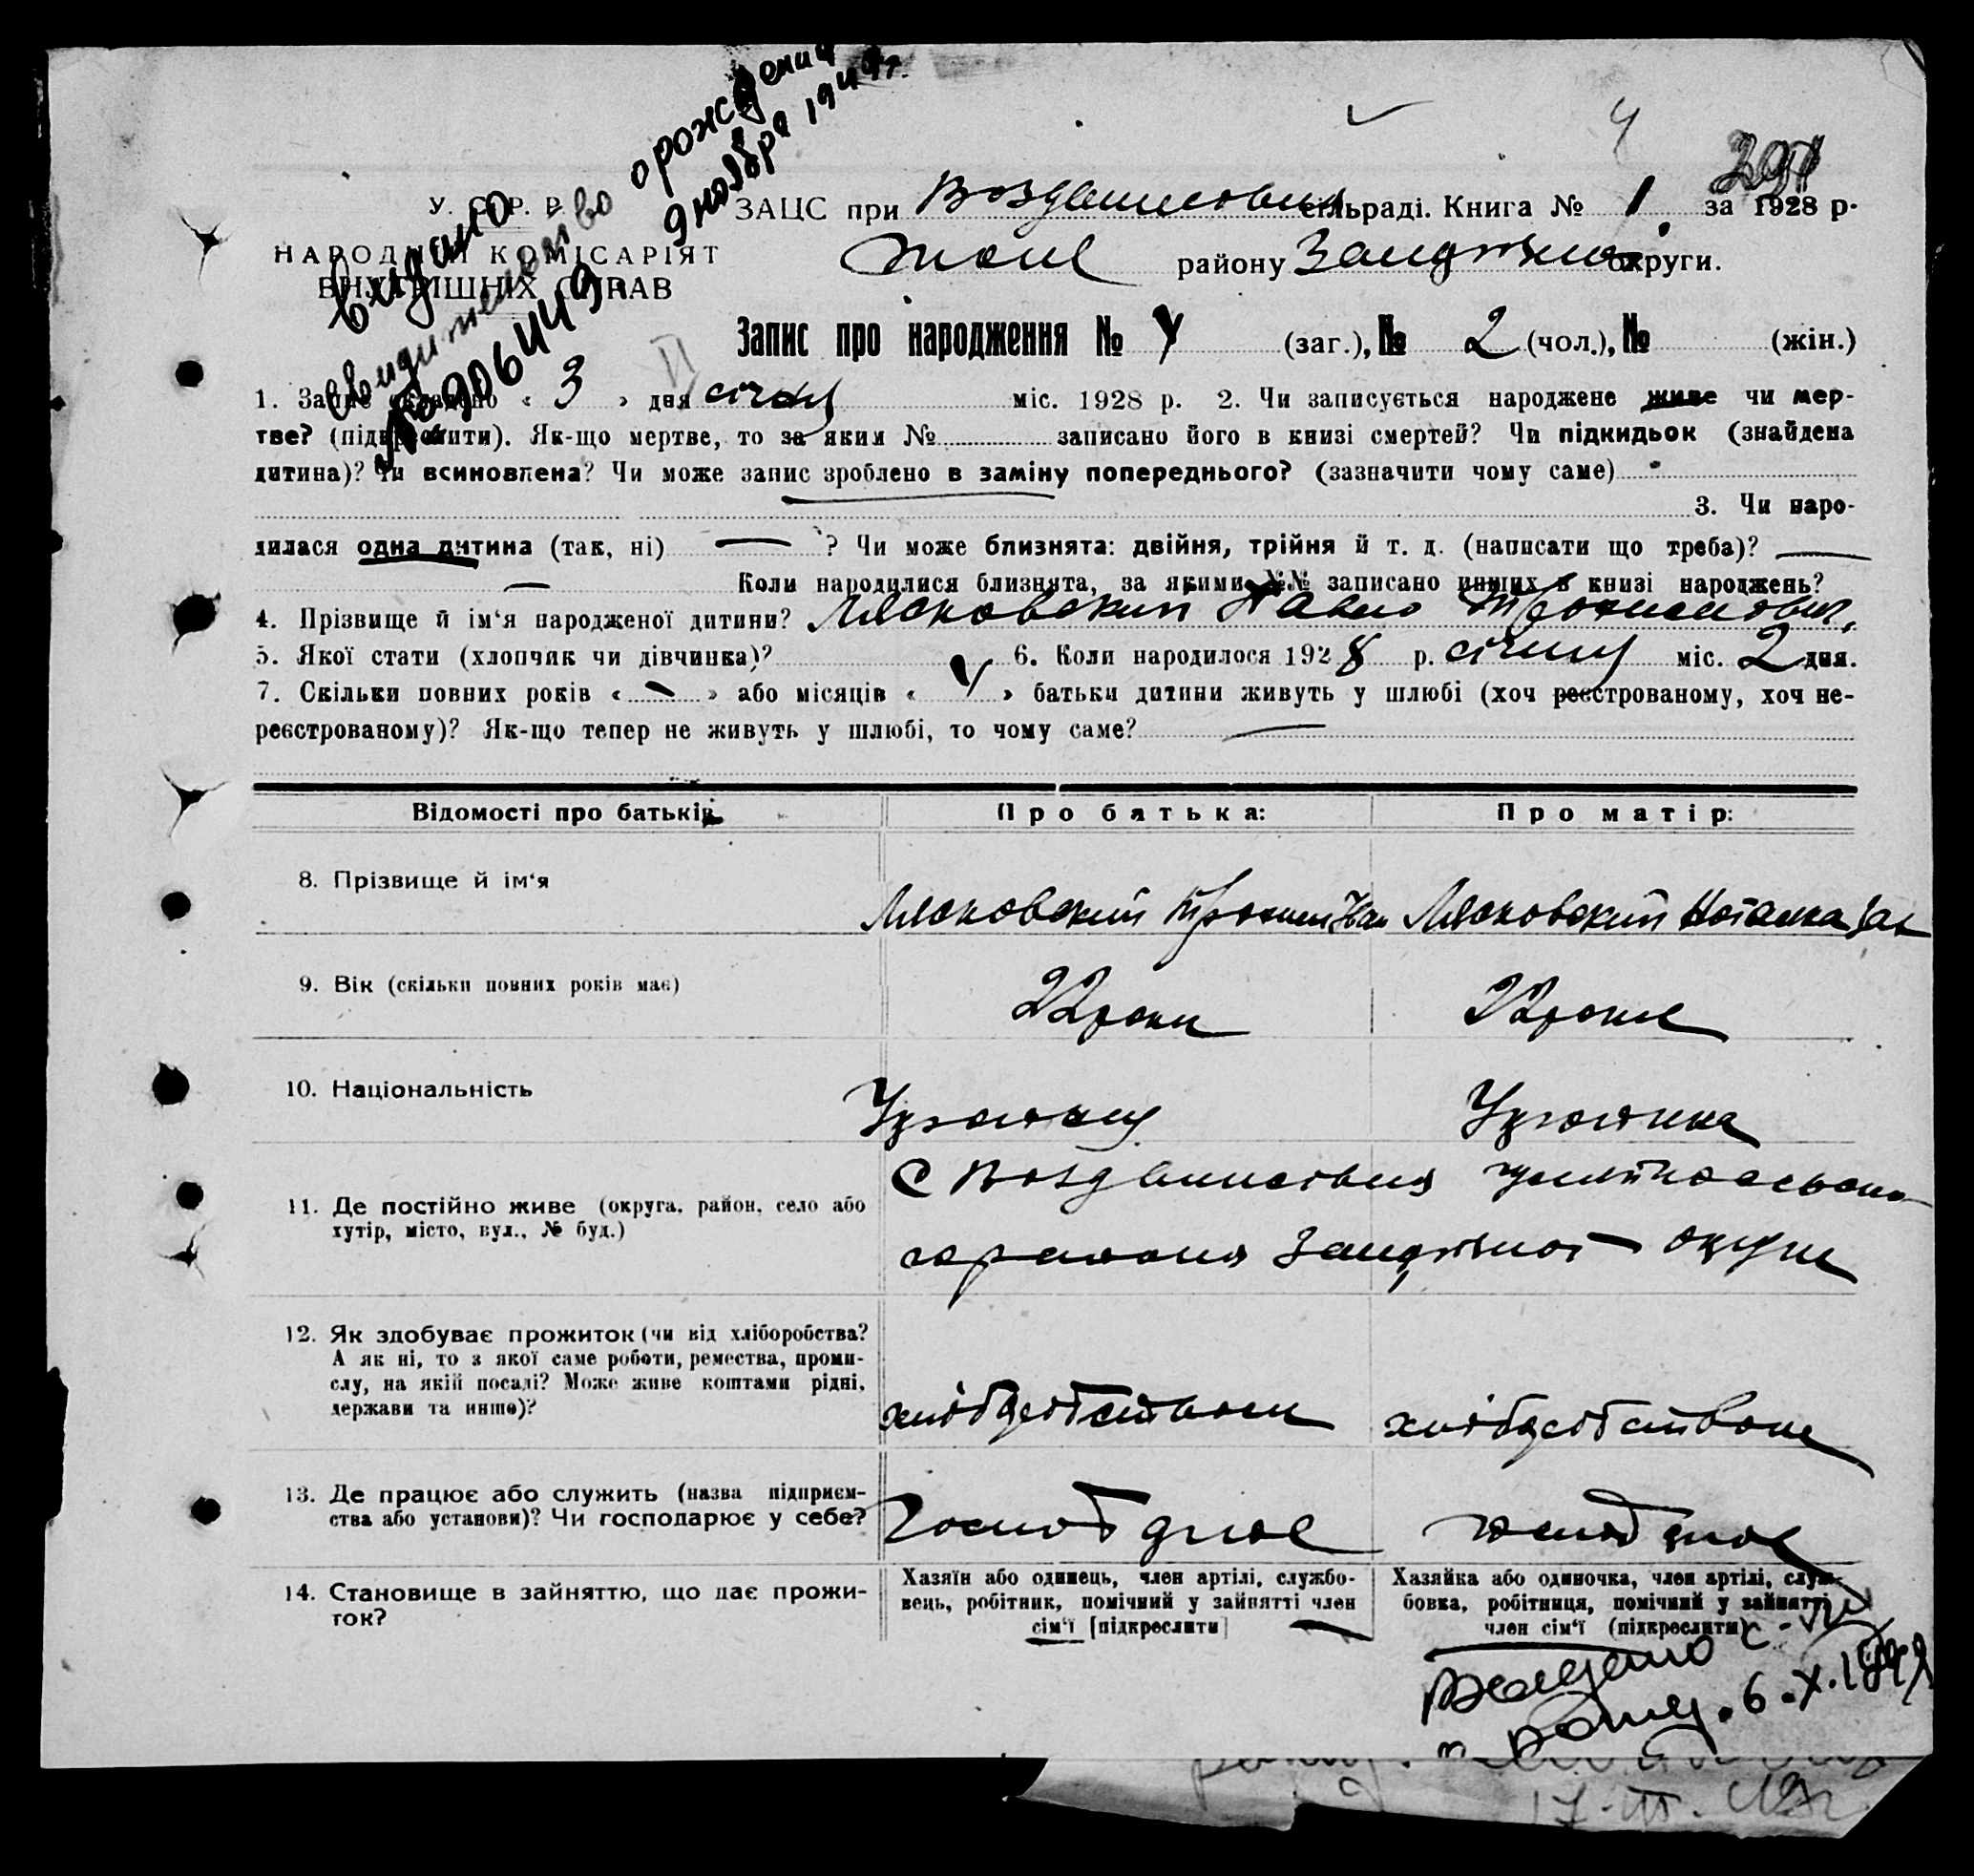 Видано
Свидительство о рождении
9 ноября 1949г.
4
У. С. Р. Р.
НАРОДНІЙ КОМІСАРІЯТ
ВНУТРІШНІХ СПРАВ
ЗАЦС при сільраді. Книга № 1 за 1928 р.
району округи.
Запис про народження № 4 (заг.), № 2 (чол.), № (жін.)
1. Запис складено « 3 » дня січня міс. 1928 р. 2. Чи записується народжене живе чи мер-
тве? (підкреслити). Як-що мертве, то за яким № записано його в книзі смертей? Чи підкидьок (знайдена
дитина)? Чи всиновлена? Чи може запис зроблено в заміну попереднього? (зазначити чому саме)
3. Чи наро-
дилася одна дитина (так, ні) — ? Чи може близнята: двійня, трійня й т. д. (написати що треба)? —
— Коли народилися близнята, за якими №№ записано инших в книзі народжень?
4. Прізвище й ім‘я народженої дитини? Лясковский Павло Трохимович.
5. Якої стати (хлопчик чи дівчинка)? 6. Коли народилося 1928 р. січня міс. 2 дня.
7. Скільки повних років « — » або місяців « 4 » батьки дитини живуть у шлюбі (хоч реєстрованому, хоч не-
реєстрованому)? Як-що тепер не живуть у шлюбі, то чому саме? —
Відомості про батьків Про батька: Про матір:
8. Прізвище й ім‘я Лясковский Трохим Иван Лясковский Наталка
9. Вік (скільки повних років має) 22 роки 22 роки
10. Національність Українец Українка
11. Де постійно живе (округа, район, село або
хутір, місто, вул., № буд.)
С
района округи
12. Як здобуває прожиток (чи від хліборобства?
А як ні, то з якої саме роботи, ремества, проми-
слу, на якій посаді? Може живе коштами рідні,
держави та инше)?
хліборобством хліборобством
13. Де працює або служить (назва підприєм-
ства або установи)? Чи господарює у себе?
14. Становище в зайняттю, що дає прожи-
ток?
Хазяїн або одинець, член артілі, службо-
вець, робітник, помічний у зайнятті член
сім‘ї [підкреслити]
Хазяйка або одиночка, член артілі, служ-
бовка, робітниця, помічний у зайнятті
член сім‘ї (підкреслити)
Видано
6.X.
17-III-